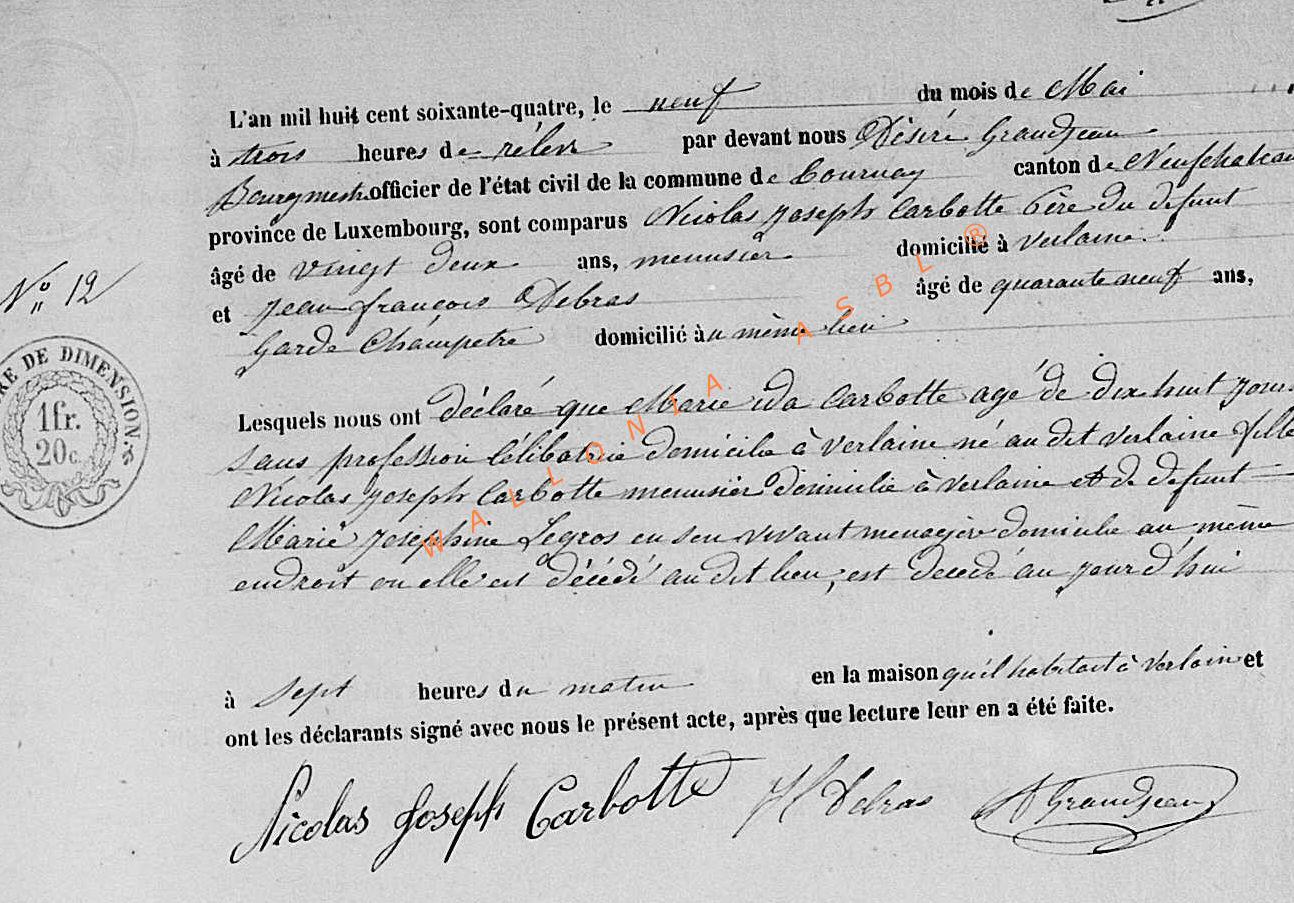 L'an mil huit cent soixante-quatre, le neuf du mois de Mai
à trois heures de rélevé par devant nous Désiré Grandjean
Bourgmestre officier de l'état civil de la commune de Tournay canton de Neufchateau
province de Luxembourg, sont comparus Nicolas Joseph Carbotte Père du defunt
âgé de vingt deux ans, menusier domicilié à Verlaine
et Jean françois Debras âgé de quarante neuf ans,
Garde Champetre domicilié au même lieu
N° 12
TIMBRE DE DIMENSION.
1fr.
20c.
Lesquels nous ont déclaré que Marie ida Carbotte agé de dix huit jours
sans profession Célibatrie domicilie à Verlaine né au dit Verlaine fille
Nicolas Joseph Carbotte menusier domicilie à Verlaine et de defunt
Marie Joséphine Legros en son vivant menagère domicilie au même
endroit ou elle est décédé au dit lieu, est decedé au jour d'hui
à sept heures du matin en la maison qu'il habitait à Verlaine et
ont les déclarants signé avec nous le présent acte, après que lecture leur en a été faite.
Nicolas Joseph Carbotte Debras D Grandjean
WALLONIA ASBL ®